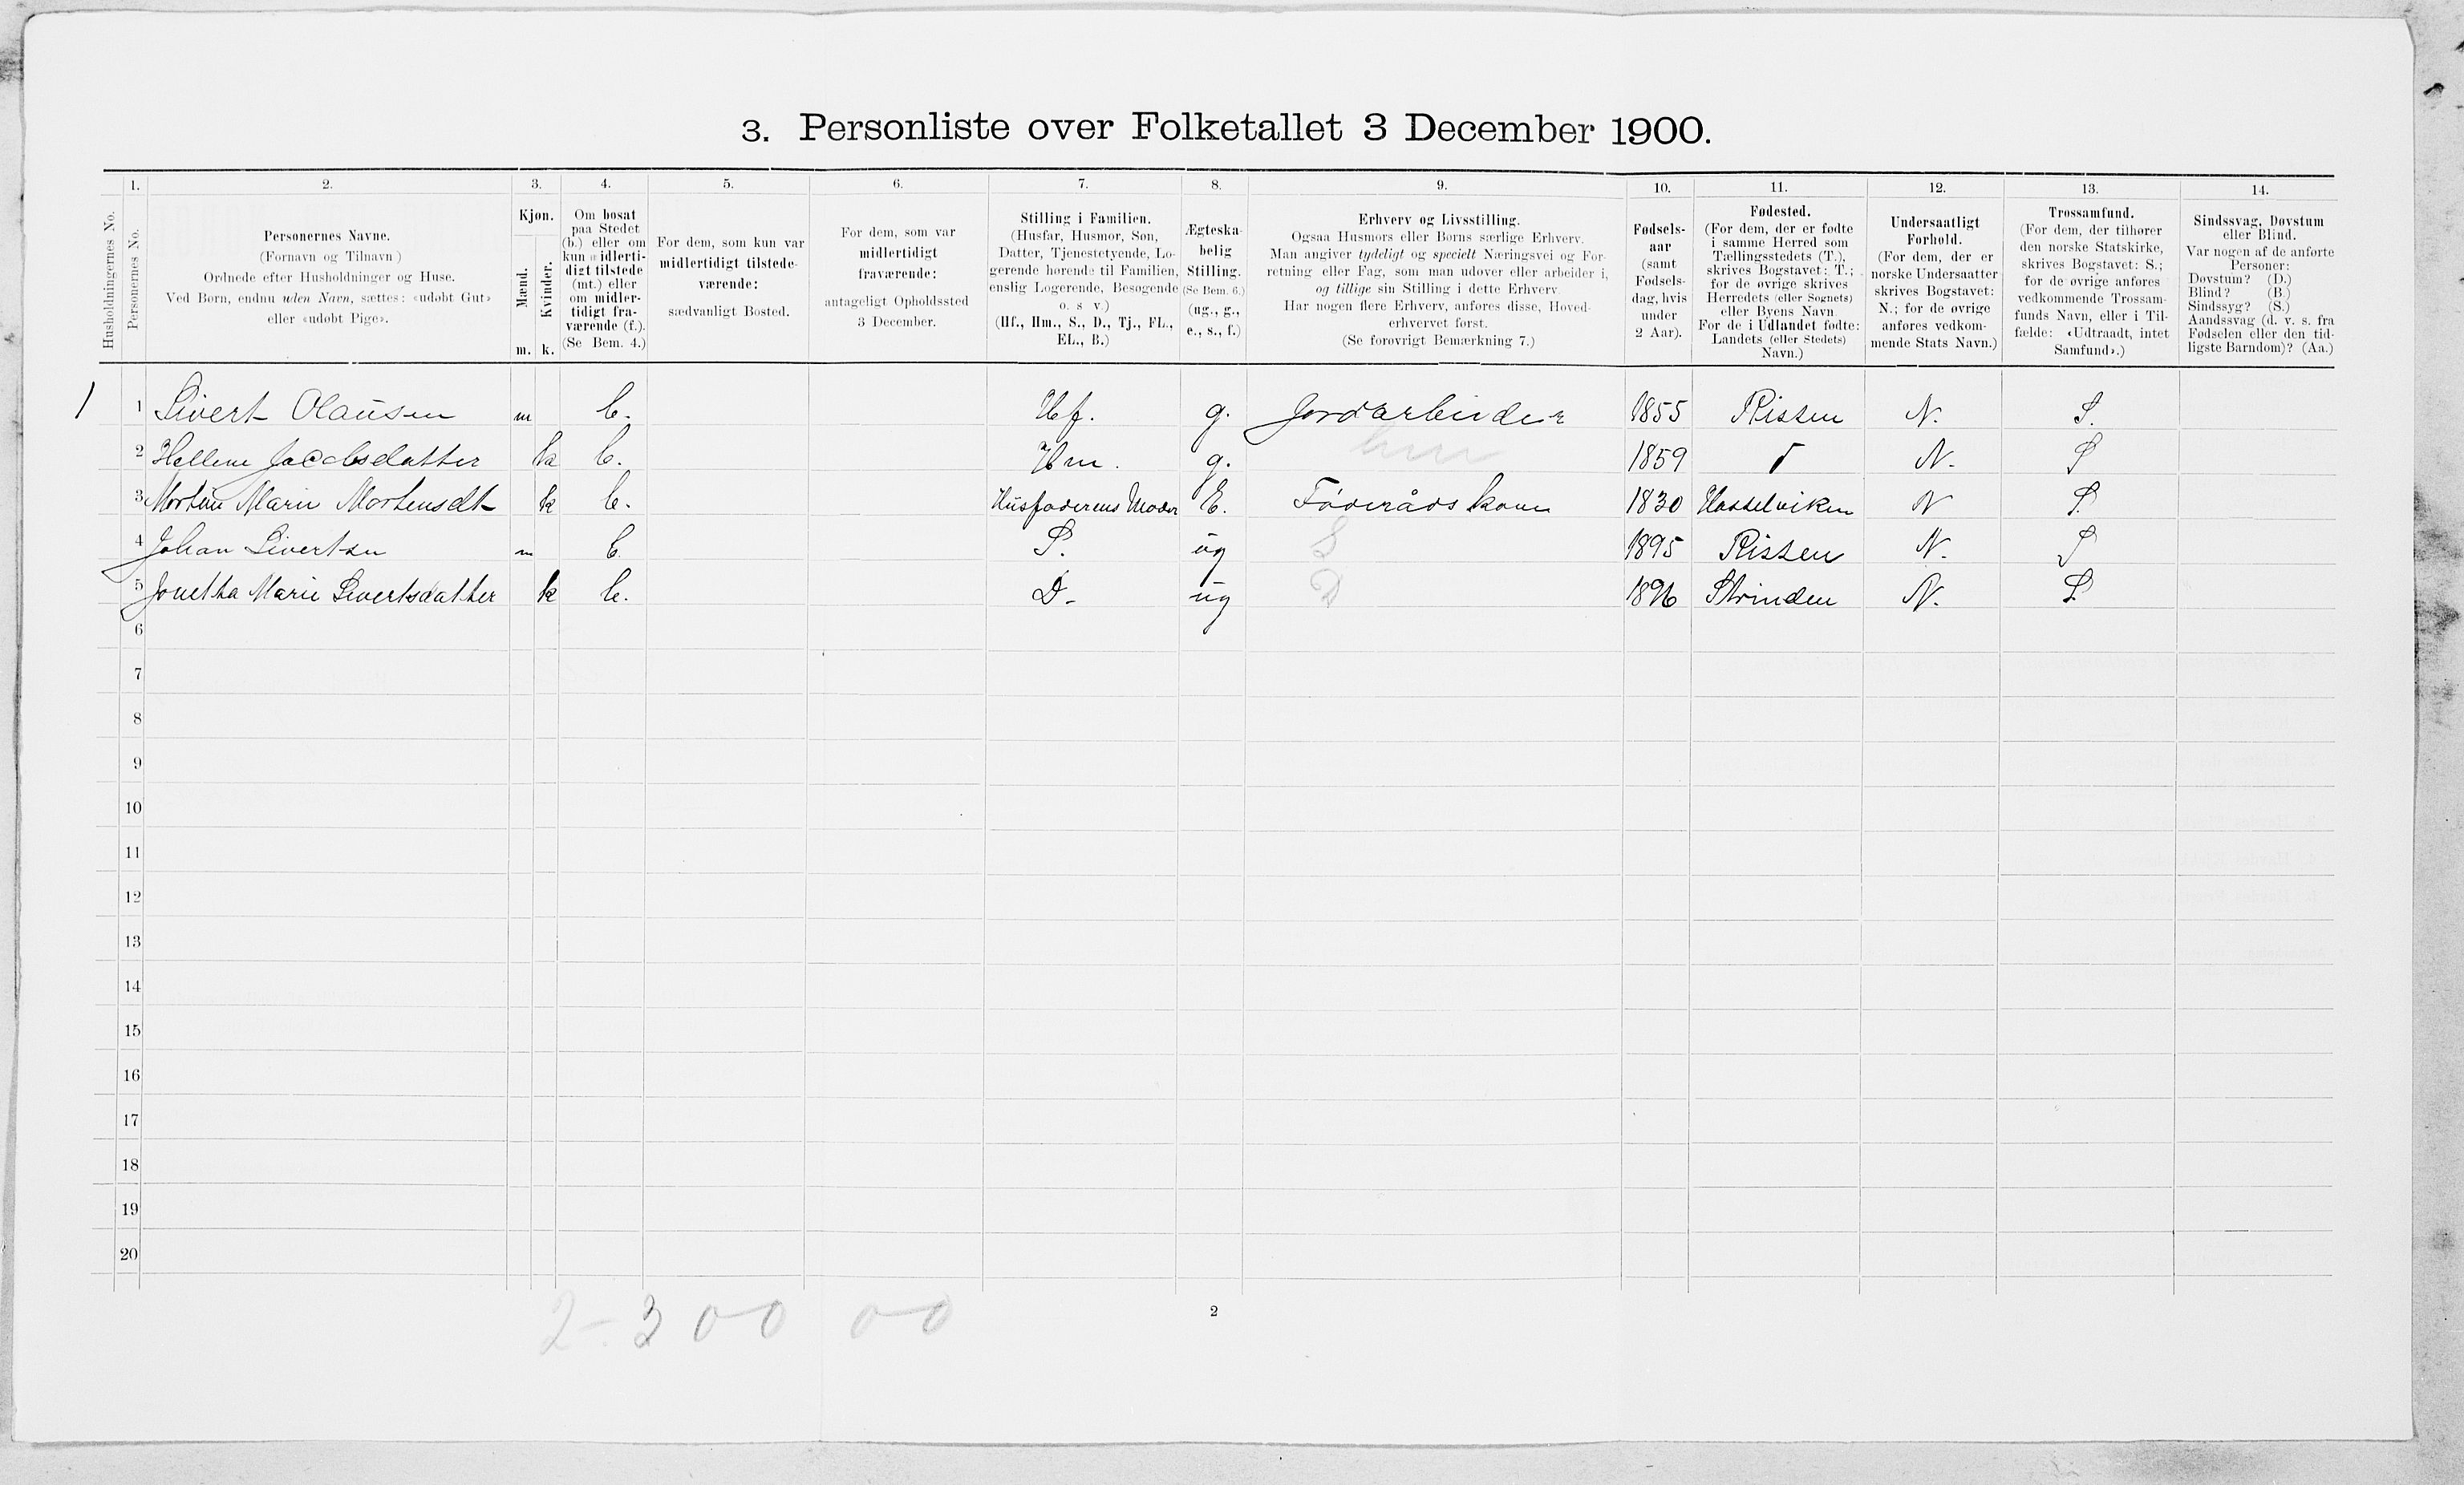 3. Personliste over Folketallet 3 December 1900.
1. 2. 3. 4. 5. 6. 7. 8. 9. 10. 11. 12. 13. 14.
Husholdningernes No.
Personernes No.
Personernes Navne.
(Fornavn og Tilnavn)
Ordnede efter Husholdninger og Huse.
Ved Børn, endnu uden Navn, sættes: «udøbt Gut»
eller «udøbt Pige».
Kjøn.
Mænd.
Kvinder.
m. k.
Om bosat
paa Stedet
(b.) eller om
kun midlerti-
digt tilstede
(mt.) eller
om midler-
tidigt fra-
værende (f.).
(Se Bem. 4.)
For dem, som kun var
midlertidigt tilstede-
værende:
sædvanligt Bosted.
For dem, som var
midlertidigt
fraværende:
antageligt Opholdssted
3 December.
Stilling i Familien.
(Husfar, Husmor, Søn,
Datter, Tjenestetyende, Lo-
gerende hørende til Familien,
enslig Logerende, Besøgende
o. s v.)
(Hf., Hm., S., D., Tj., FL.,
EL., B.)
Ægteska-
belig
Stilling.
(Se Bem. 6.)
(ug., g.,
e., s., f.)
Erhverv og Livsstilling.
Ogsaa Husmors eller Børns særlige Erhverv.
Man angiver tydeligt og specielt Næringsvei og For-
retning eller Fag, som man udøver eller arbeider i,
og tillige sin Stilling i dette Erhverv
Har nogen flere Erhverv, anføres disse, Hoved-
erhvervet først.
(Se forøvrigt Bemærkning 7.)
Fødsels-
aar
(samt
Fødsels-
dag, hvis
under
2 Aar).
Fødested.
(For dem, der er fødte
i samme Herred som
Tællingsstedets (T.),
skrives Bogstavet: T.;
for de øvrige skrives
Herredets (eller Sognets)
eller Byens Navn
For de i Udlandet fødte:
Landets (eller Stedets)
Navn.)
Undersaatligt
Forhold.
(For dem, der er
norske Undersaatter
skrives Bogstavet:
N.; for de øvrige
anføres vedkom-
mende Stats Navn.)
Trossamfund.
(For dem, der tilhører
den norske Statskirke,
skrives Bogstavet: S.;
for de øvrige anføres
vedkommende Trossam-
funds Navn, eller i Til-
fælde: «Udtraadt, intet
Samfund».)
Sindssvag, Døvstum
eller Blind.
Var nogen af de anførte
Personer:
Døvstum? (D.)
Blind? (B.)
Sindssyg? (S.)
Aandssvag (d. v. s. fra
Fødselen eller den tid-
ligste Barndom)? (Aa.)
1 1 Sivert Olausen m b. Hf. g. Jordarbeider 1855 Rissen N. S.
2 Hellene Jacobsdatter k b. Hm. g. 1859 N. S
3 Mortine Marie Mortensdt k b. Husfaderens Moder E. Føderåds kone 1830 Hasselviken N S.
4 Johan Sivertsen m b S. ug S 1895 Rissen N. S
5 Jonetha Marie Sivertsdatter k b. D. ug D 1896 Strinden N. S.
6
7
8
9
10
11
12
13
14
15
16
17
18
19
20
2 - 3 0 0 0 0
2